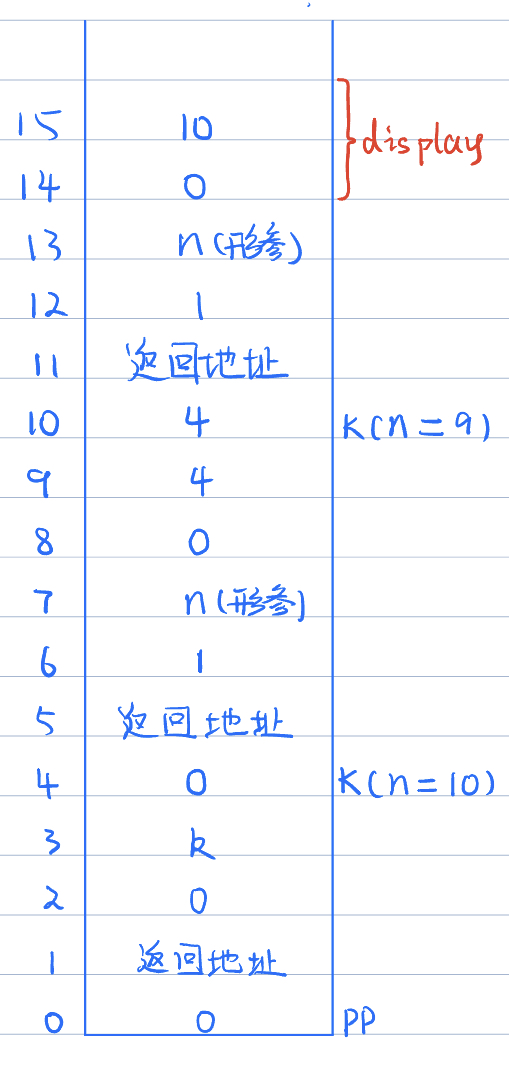 15 10 display
14 0
13 n(形参)
12 1
11 返回地址
10 4 K(n=9)
9 4
8 0
7 n(形参)
6 1
5 返回地址
4 0 K(n=10)
3 k
2 0
1 返回地址
0 0 PP